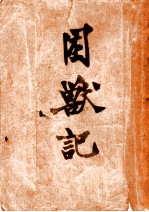 困獸記